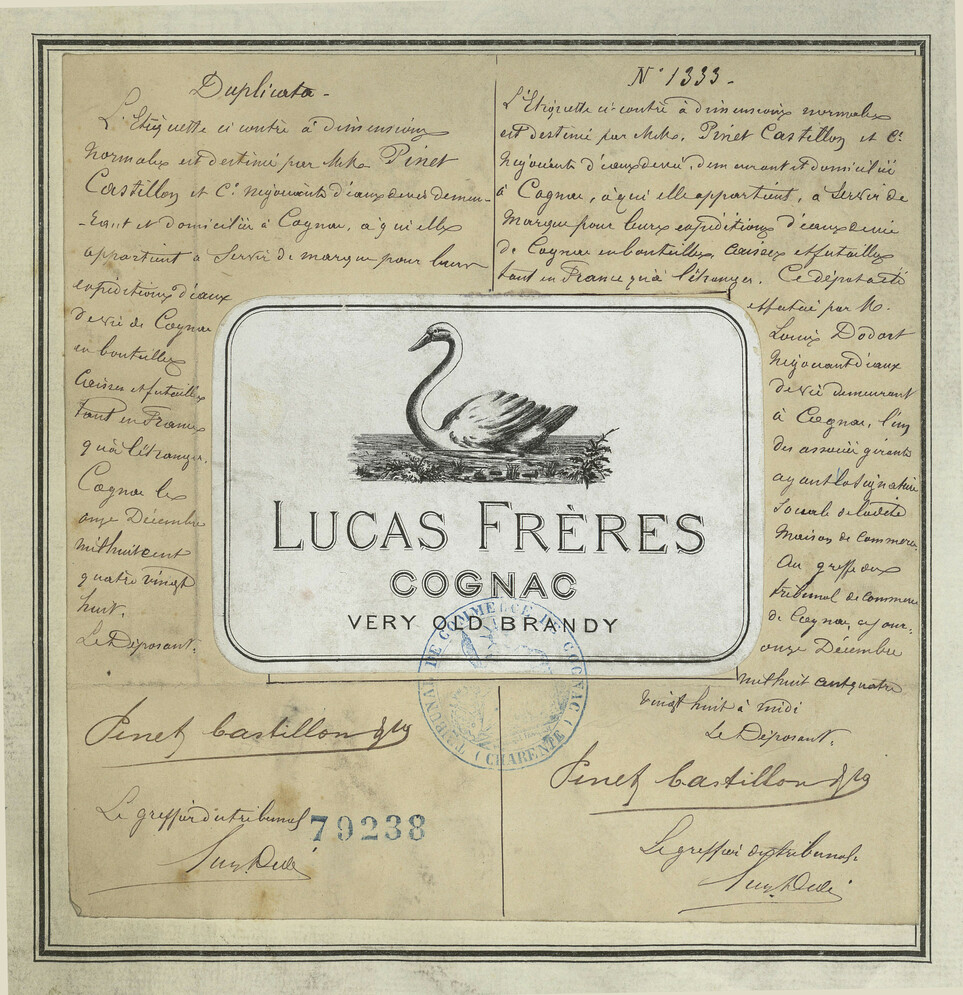 Duplicata -
L'Etiquette ci contre à dimensions
normales est destiné par MM. Pinet
Castillon et Cie. négociants d'eaux devie demeu-
-rant et domiciliés à Cognac, à qui elle
appartient à Servir de marque pour leurs
expéditions d'eaux
devie de Cognac
en bouteilles
Caisses et futailles
tant en France
qu'à l'étranger.
Cognac le
onze Décembre
mil huit cent
quatre vingt
huit.
Le Déposant.
Pinet Castillon & Cie
Le greffier du tribunal
79238
N° 1333 -
L'Etiquette ci-contre à dimensions normales
est destiné par MM. Pinet Castillon et Cie
négociants d'eaux devie, demeurant et domiciliés
à Cognac, à qui elle appartient, à Servir de
marque pour leurs expéditions d'eaux devie
de Cognac en bouteilles, caisses et futailles
tant en France qu'à l'étranger. Ce dépôt a été
effectué par M.
Louis Dodart
négociant d'eaux
de vie demeurant
à Cognac, l'un
des associés gérants
ayant la signature
Sociale de ladite
Maison de Commerce.
Au greffe du
tribunal de commerce
de Cognac, ce jour,
onze Décembre
mil huit cent quatre
vingt huit à midi
Le Déposant.
Pinet Castillon & Cie
Le greffier du tribunal.
LUCAS FRÈRES
COGNAC
VERY OLD BRANDY
TRIBUNAL DE COMMERCE DE COGNAC
(CHARENTE)